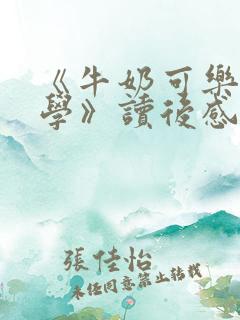 《牛奶可樂
學》讀後感
張佳怡
未經同意禁止轉載